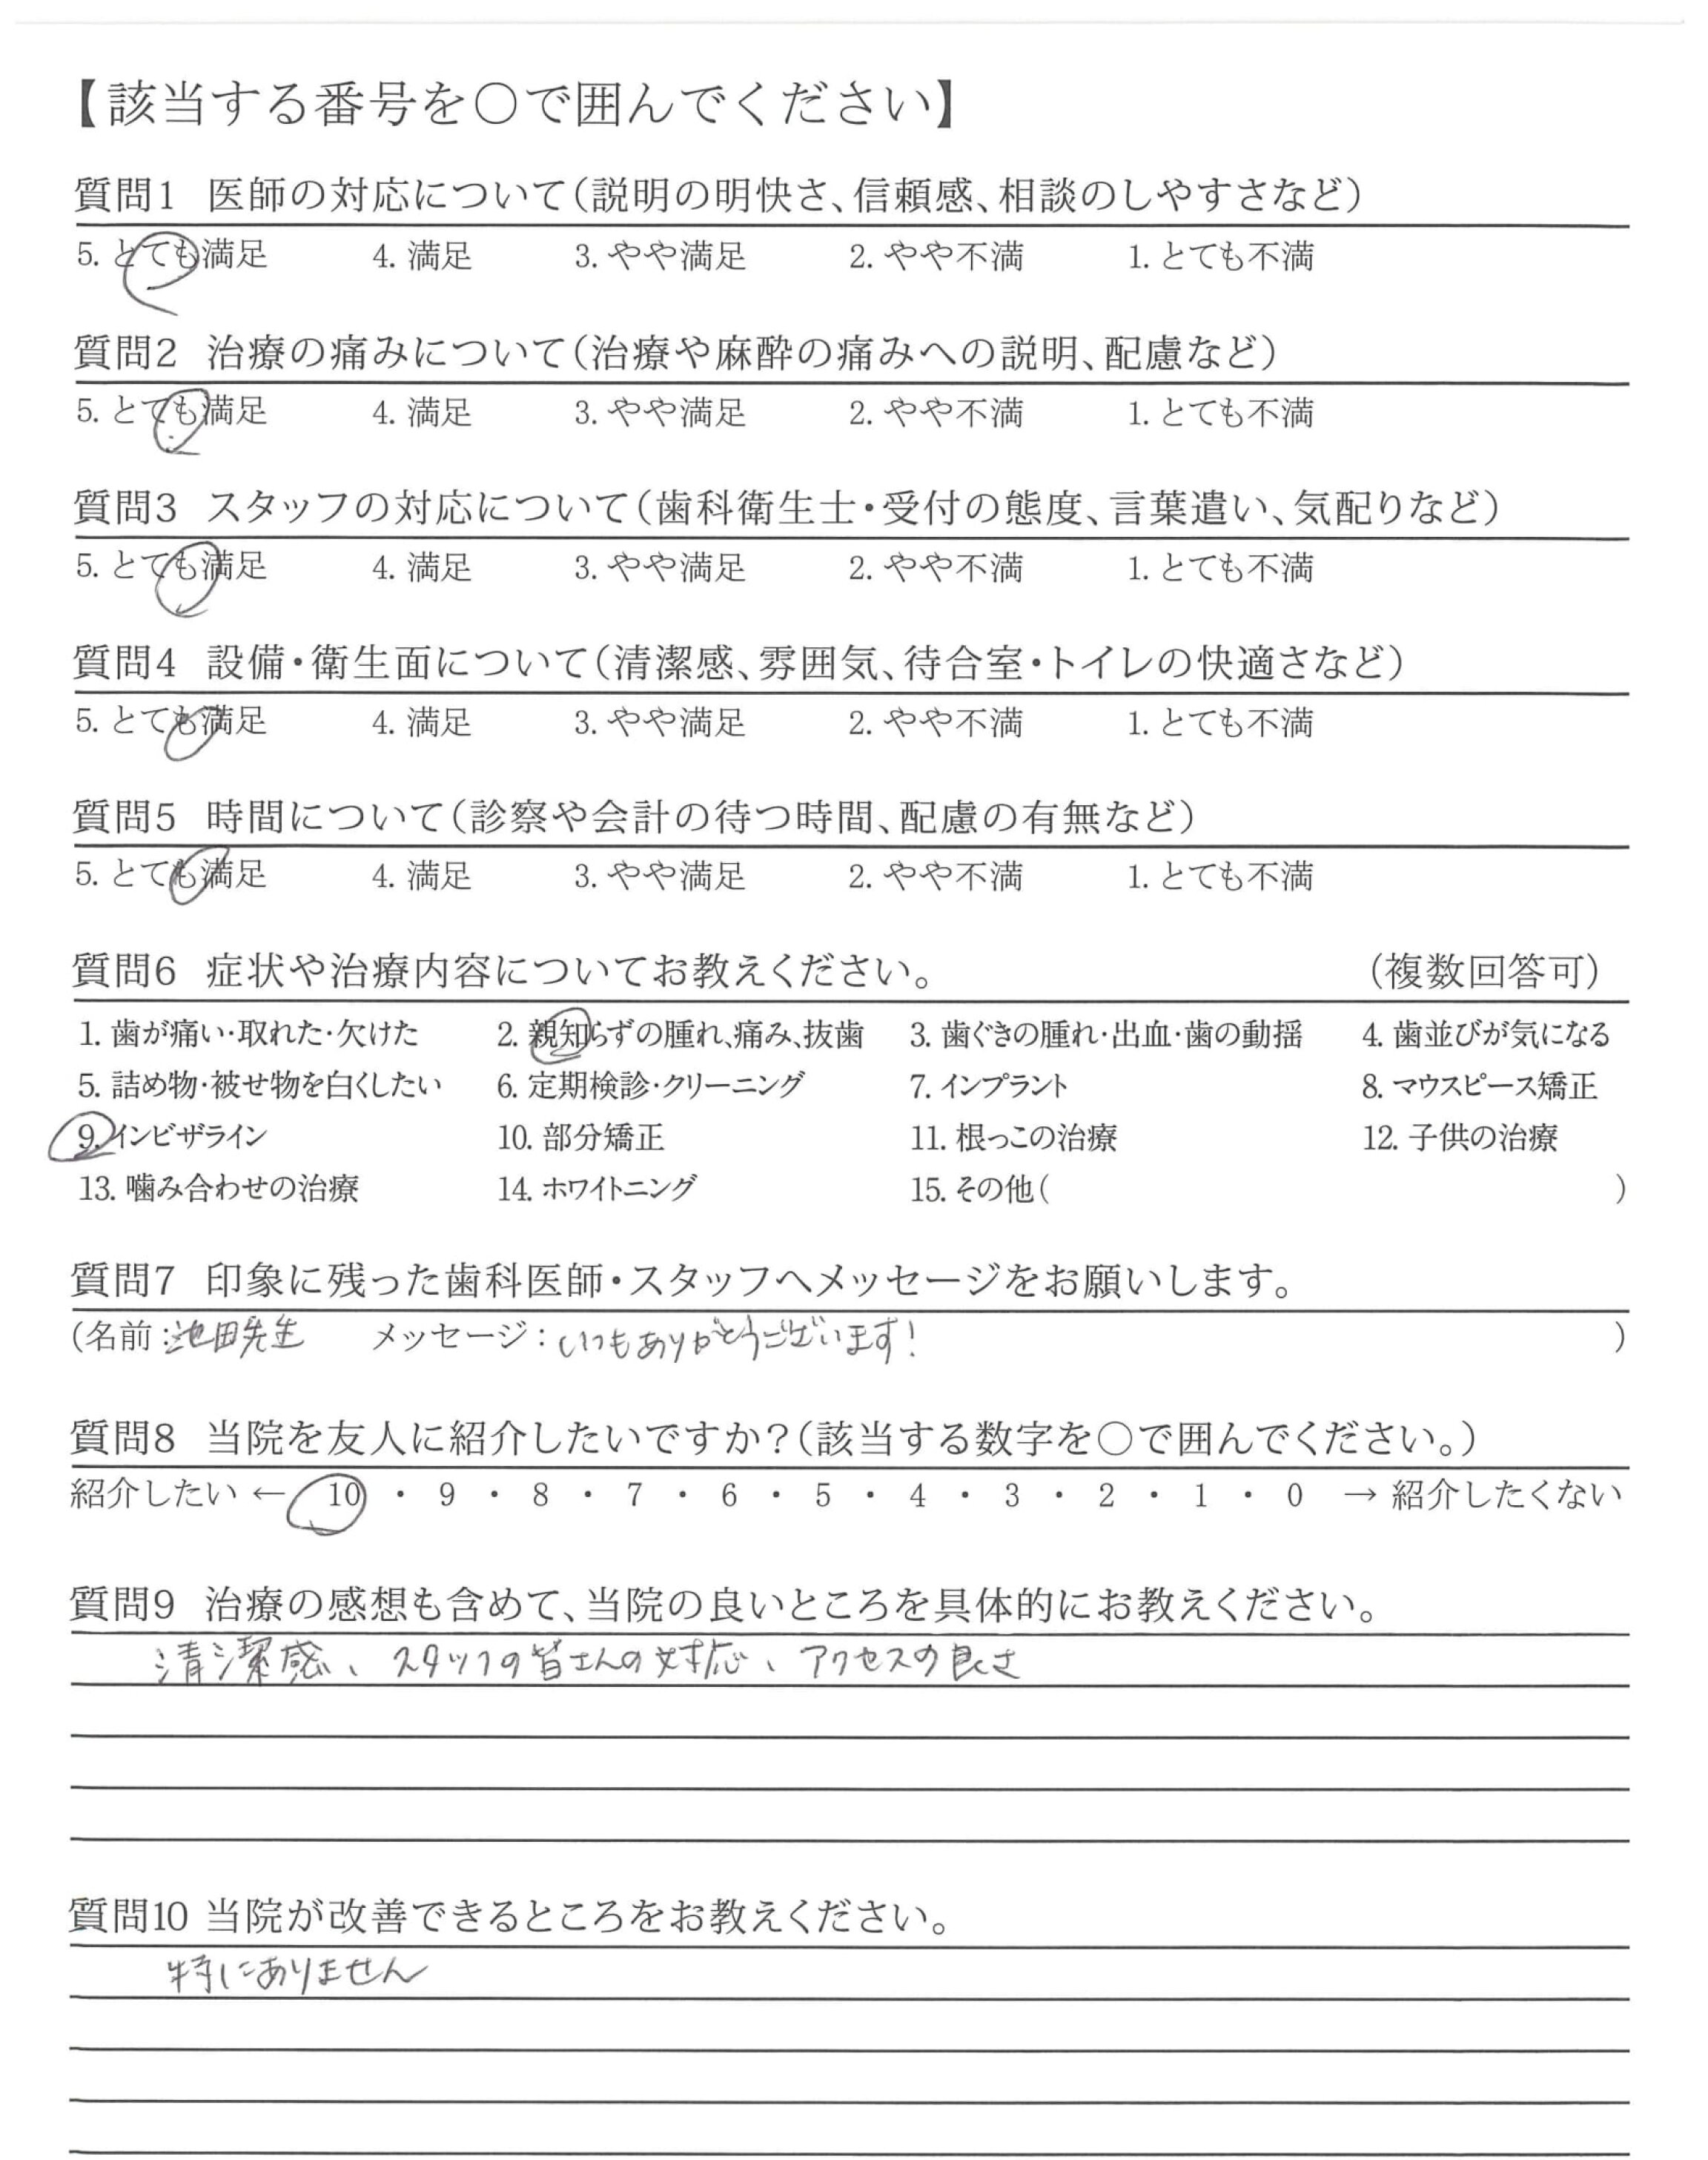 【該当する番号を○で囲んでください】
質問1 医師の対応について(説明の明快さ、信頼感、相談のしやすさなど)
5. とても満足 4. 満足 3. やや満足 2. やや不満 1. とても不満
質問2 治療の痛みについて(治療や麻酔の痛みへの説明、配慮など)
5. とても満足 4. 満足 3. やや満足 2. やや不満 1. とても不満
質問3 スタッフの対応について(歯科衛生士・受付の態度、言葉遣い、気配りなど)
5. とても満足 4. 満足 3. やや満足 2. やや不満 1. とても不満
質問4 設備・衛生面について(清潔感、雰囲気、待合室・トイレの快適さなど)
5. とても満足 4. 満足 3. やや満足 2. やや不満 1. とても不満
質問5 時間について(診察や会計の待つ時間、配慮の有無など)
5. とても満足 4. 満足 3. やや満足 2. やや不満 1. とても不満
質問6 症状や治療内容についてお教えください。 (複数回答可)
1. 歯が痛い・取れた・欠けた 2. 親知らずの腫れ、痛み、抜歯 3. 歯ぐきの腫れ・出血・歯の動揺 4. 歯並びが気になる
5. 詰め物・被せ物を白くしたい 6. 定期検診・クリーニング 7. インプラント 8. マウスピース矯正
9. インビザライン 10. 部分矯正 11. 根っこの治療 12. 子供の治療
13. 噛み合わせの治療 14. ホワイトニング 15. その他( )
質問7 印象に残った歯科医師・スタッフへメッセージをお願いします。
(名前：池田先生 メッセージ：いつもありがとうございます! )
質問8 当院を友人に紹介したいですか?(該当する数字を○で囲んでください。)
紹介したい ← 10 ・ 9 ・ 8 ・ 7 ・ 6 ・ 5 ・ 4 ・ 3 ・ 2 ・ 1 ・ 0 → 紹介したくない
質問9 治療の感想も含めて、当院の良いところを具体的にお教えください。
清潔感、スタッフの皆さんの対応、アクセスの良さ
質問10 当院が改善できるところをお教えください。
特にありません